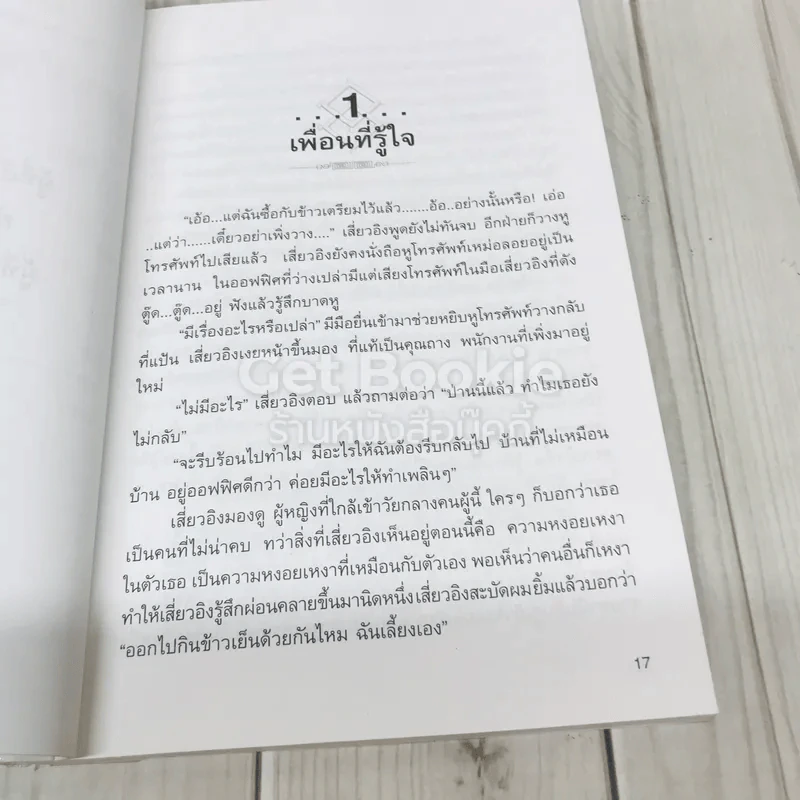 1
เพื่อนที่รู้ใจ
“เอ้อ...แต่ฉันซื้อกับข้าวเตรียมไว้แล้ว.......อ้อ..อย่างนั้นหรือ! เอ่อ
..แต่ว่า......เดี๋ยวอย่าเพิ่งวาง....” เสี่ยวอิงพูดยังไม่ทันจบ อีกฝ่ายก็วางหู
โทรศัพท์ไปเสียแล้ว เสี่ยวอิงยังคงนั่งถือหูโทรศัพท์เหม่อลอยอยู่เป็น
เวลานาน ในออฟฟิศที่ว่างเปล่ามีแต่เสียงโทรศัพท์ในมือเสี่ยวอิงที่ดัง
ตู๊ด...ตู๊ด...อยู่ ฟังแล้วรู้สึกบาดหู
“มีเรื่องอะไรหรือเปล่า” มีมือยื่นเข้ามาช่วยหยิบหูโทรศัพท์วางกลับ
ที่แป้น เสี่ยวอิงเงยหน้าขึ้นมอง ที่แท้เป็นคุณถาง พนักงานที่เพิ่งมาอยู่
ใหม่
Get Bookie
“ไม่มีอะไร” เสี่ยวอิงตอบ แล้วถามต่อว่า “ป่านนี้แล้ว ทำไมเธอยัง
ไม่กลับ”
ร้านหนังสือบุ๊คกี้
“จะรีบร้อนไปทำไม มีอะไรให้ฉันต้องรีบกลับไป บ้านที่ไม่เหมือน
บ้าน อยู่ออฟฟิศดีกว่า ค่อยมีอะไรให้ทำเพลินๆ”
เสี่ยวอิงมองดู ผู้หญิงที่ใกล้เข้าวัยกลางคนผู้นี้ ใครๆ ก็บอกว่าเธอ
เป็นคนที่ไม่น่าคบ ทว่าสิ่งที่เสี่ยวอิงเห็นอยู่ตอนนี้คือ ความหงอยเหงา
ในตัวเธอ เป็นความหงอยเหงาที่เหมือนกับตัวเอง พอเห็นว่าคนอื่นก็เหงา
ทำให้เสี่ยวอิงรู้สึกผ่อนคลายขึ้นมานิดหนึ่ง เสี่ยวอิงสะบัดผมยิ้มแล้วบอกว่า
“ออกไปกินข้าวเย็นด้วยกันไหม ฉันเลี้ยงเอง”
17